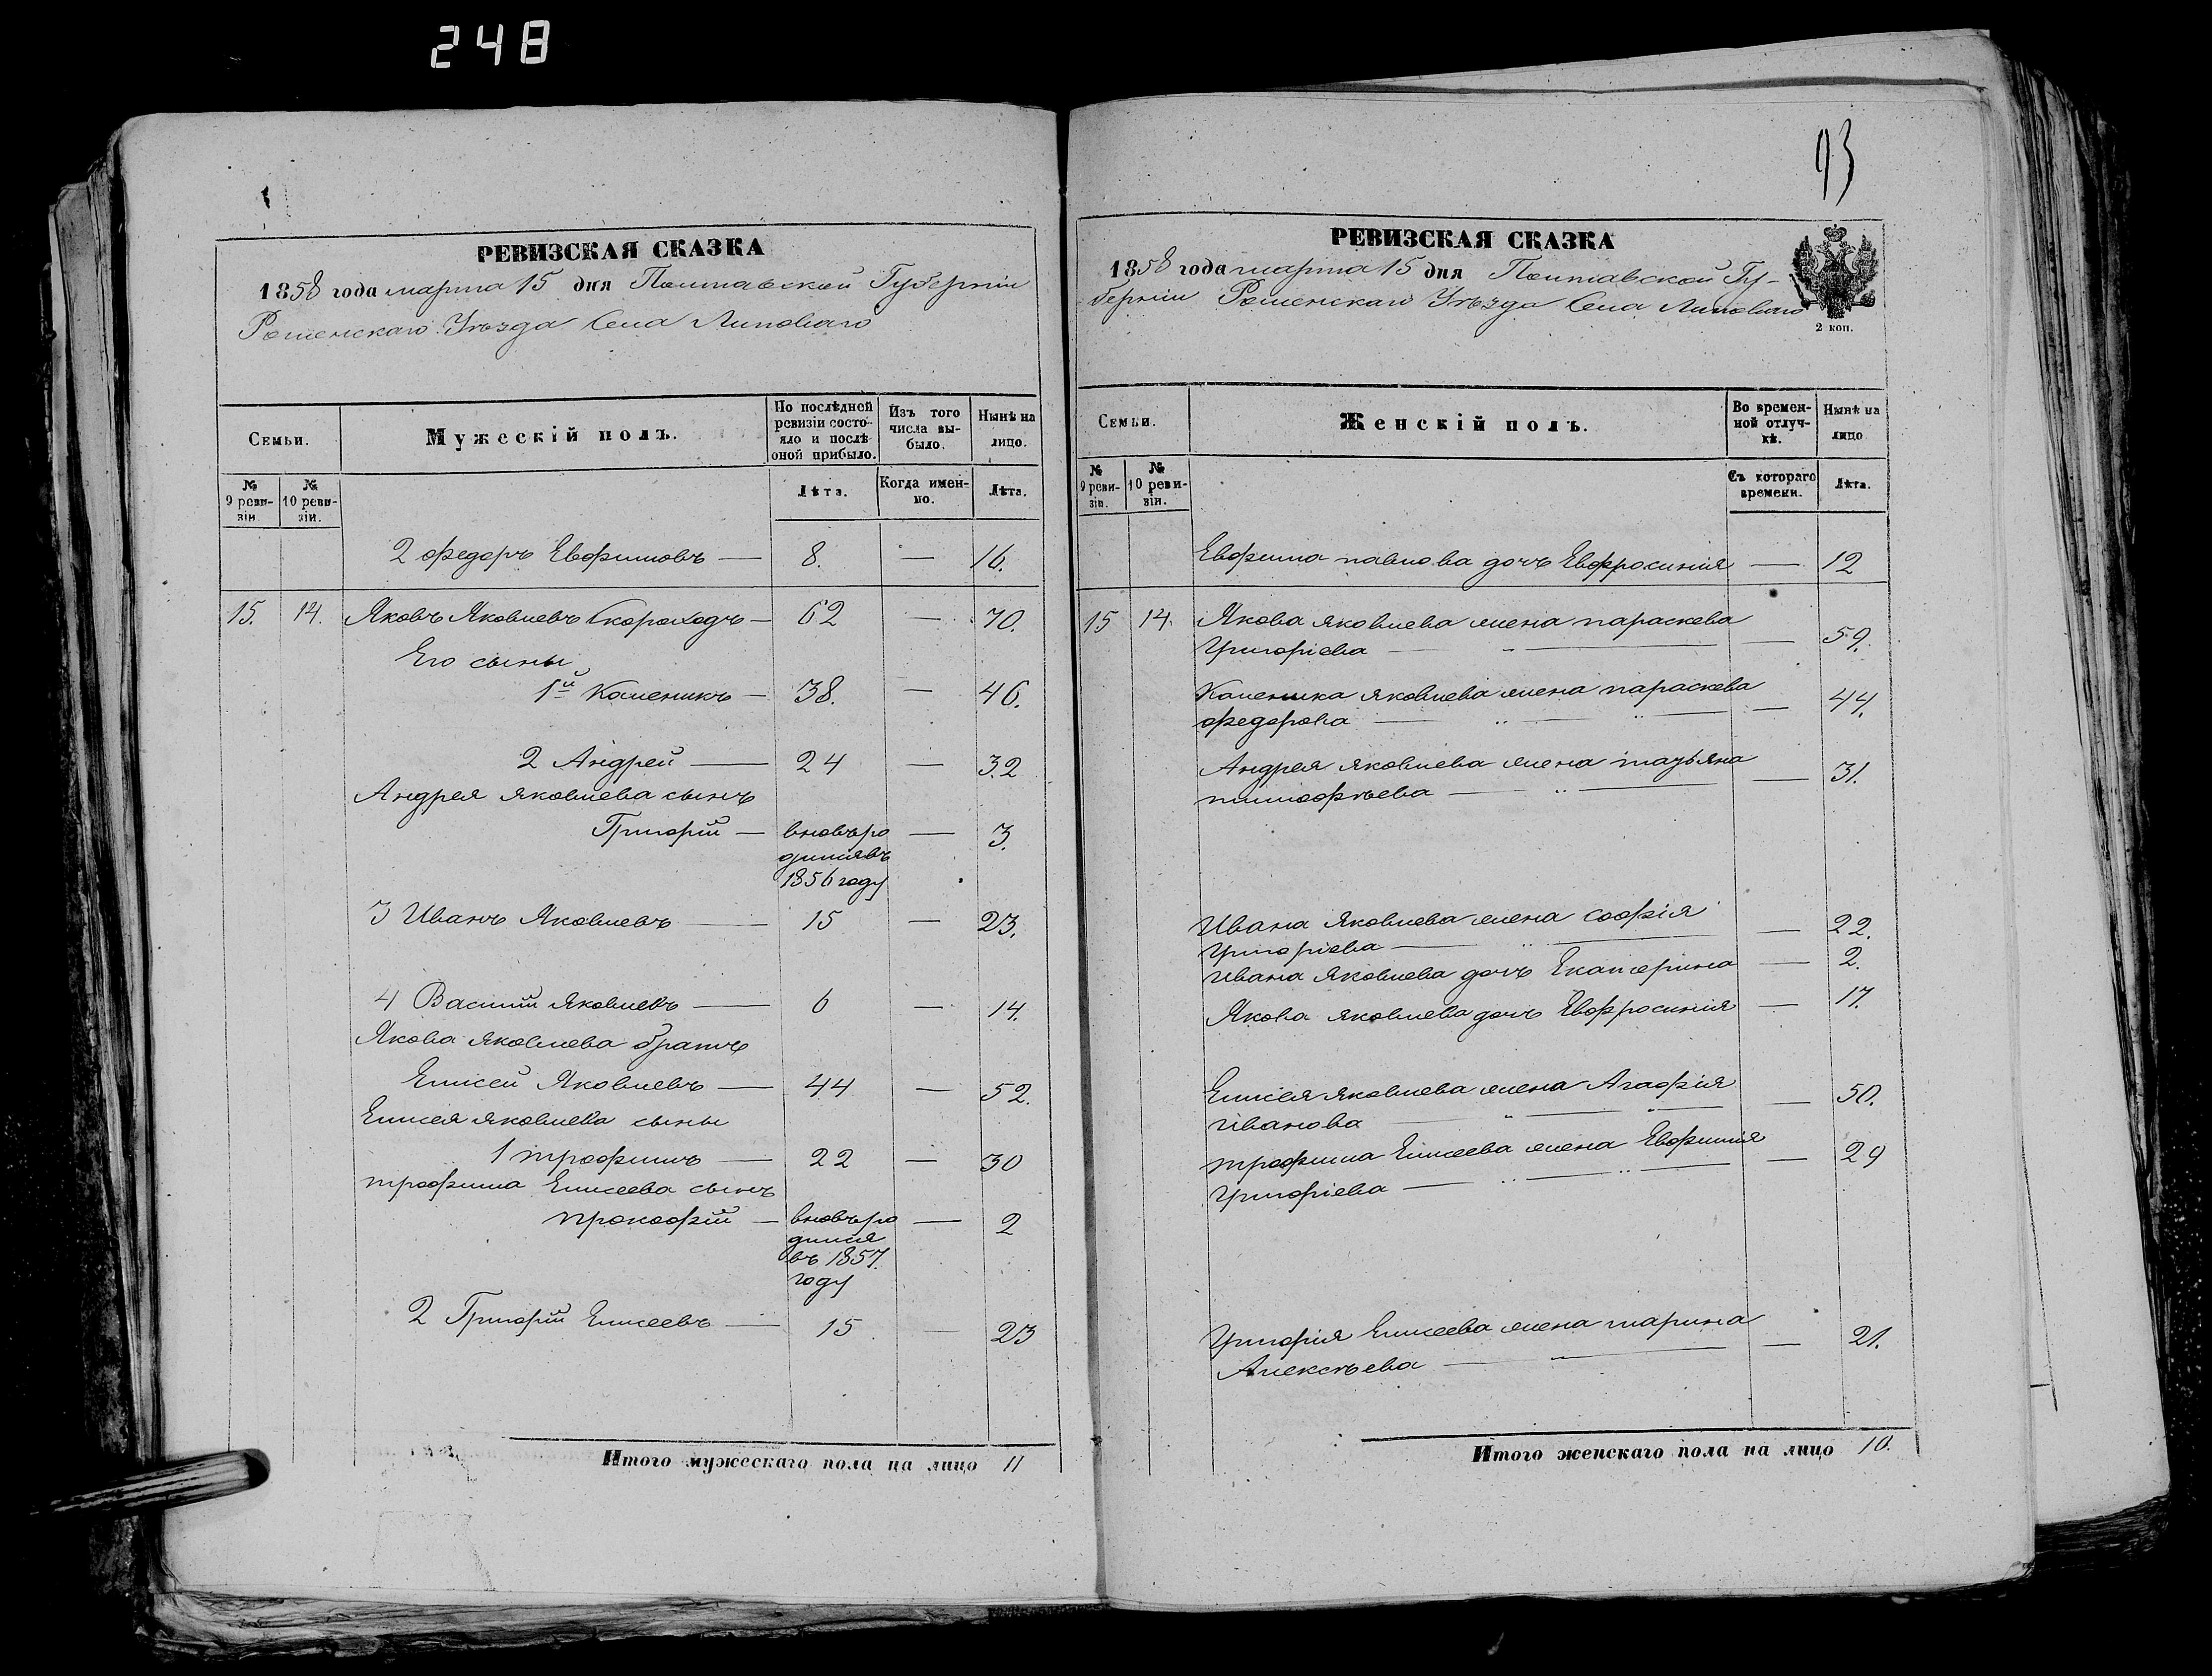 248
93
РЕВИЗСКАЯ СКАЗКА
1858 года марта 15 дня Полтавской Губерніи
Роменскаго Уѣзда Села Липоваго
Семьи.
Мужескій полъ.
По послѣдней ревизіи состо-
яло и послѣ
оной прибыло.
Изъ того
числа вы-
было.
Нынѣ на
лицо.
№
9 реви-
зіи
№
10 реви-
зіи.
Лѣта.
Когда имен-
но.
Лѣта.
2 федоръ Евфимовъ — 8. — 16.
15. 14. Яковъ Яковлевъ Скороходъ — 62 — 70.
Его сыны
1й Каленикъ — 38. — 46.
2 Андрей — 24 — 32
Андрея яковлева сынъ
Григорій — вновь ро — 3.
дился въ
1856 году
3 Иванъ Яковлевъ — 15 — 23.
4 Василій Яковлевъ — 6 — 14.
Якова Яковлева братъ
Елисей Яковлевъ — 44 — 52.
Елисея яковлева сыны
1 трофимъ — 22 — 30
трофима Елисеева сынъ
прокофій — вновь ро — 2
дился
въ 1857.
году
2 Григорій Елисеевъ — 15 — 23
Итого мужескаго пола на лицо 11
РЕВИЗСКАЯ СКАЗКА
1858 года марта 15 дня Полтавской Гу-
берніи Роменскаго Уѣзда Села Липоваго
2 коп.
Семьи.
Женскій полъ.
Во времен-
ной отлуч-
кѣ.
Нынѣ на
лицо
№
9 реви-
зіи.
№
10 реви-
зіи.
Съ котораго
времени.
Лѣта.
Евфима павлова дочь Евфросинія — 12
15 14. Якова яковлева жена параскева
Григоріева — 59.
Каленика яковлева жена параскева
федорова — 44.
Андрея яковлева жена татьяна
тимофѣева — 31.
Ивана Яковлева жена софія
Григоріева — 22.
Ивана Яковлева дочь Екатерина — 2.
Якова яковлева дочь Евфросинія — 17.
Елисея яковлева жена Агафія
Иванова — 50.
трофима Елисеева жена Евфимія
Григоріева — 29
Григорія Елисеева жена марина
Алексѣева — 21.
Итого женскаго пола на лицо 10.